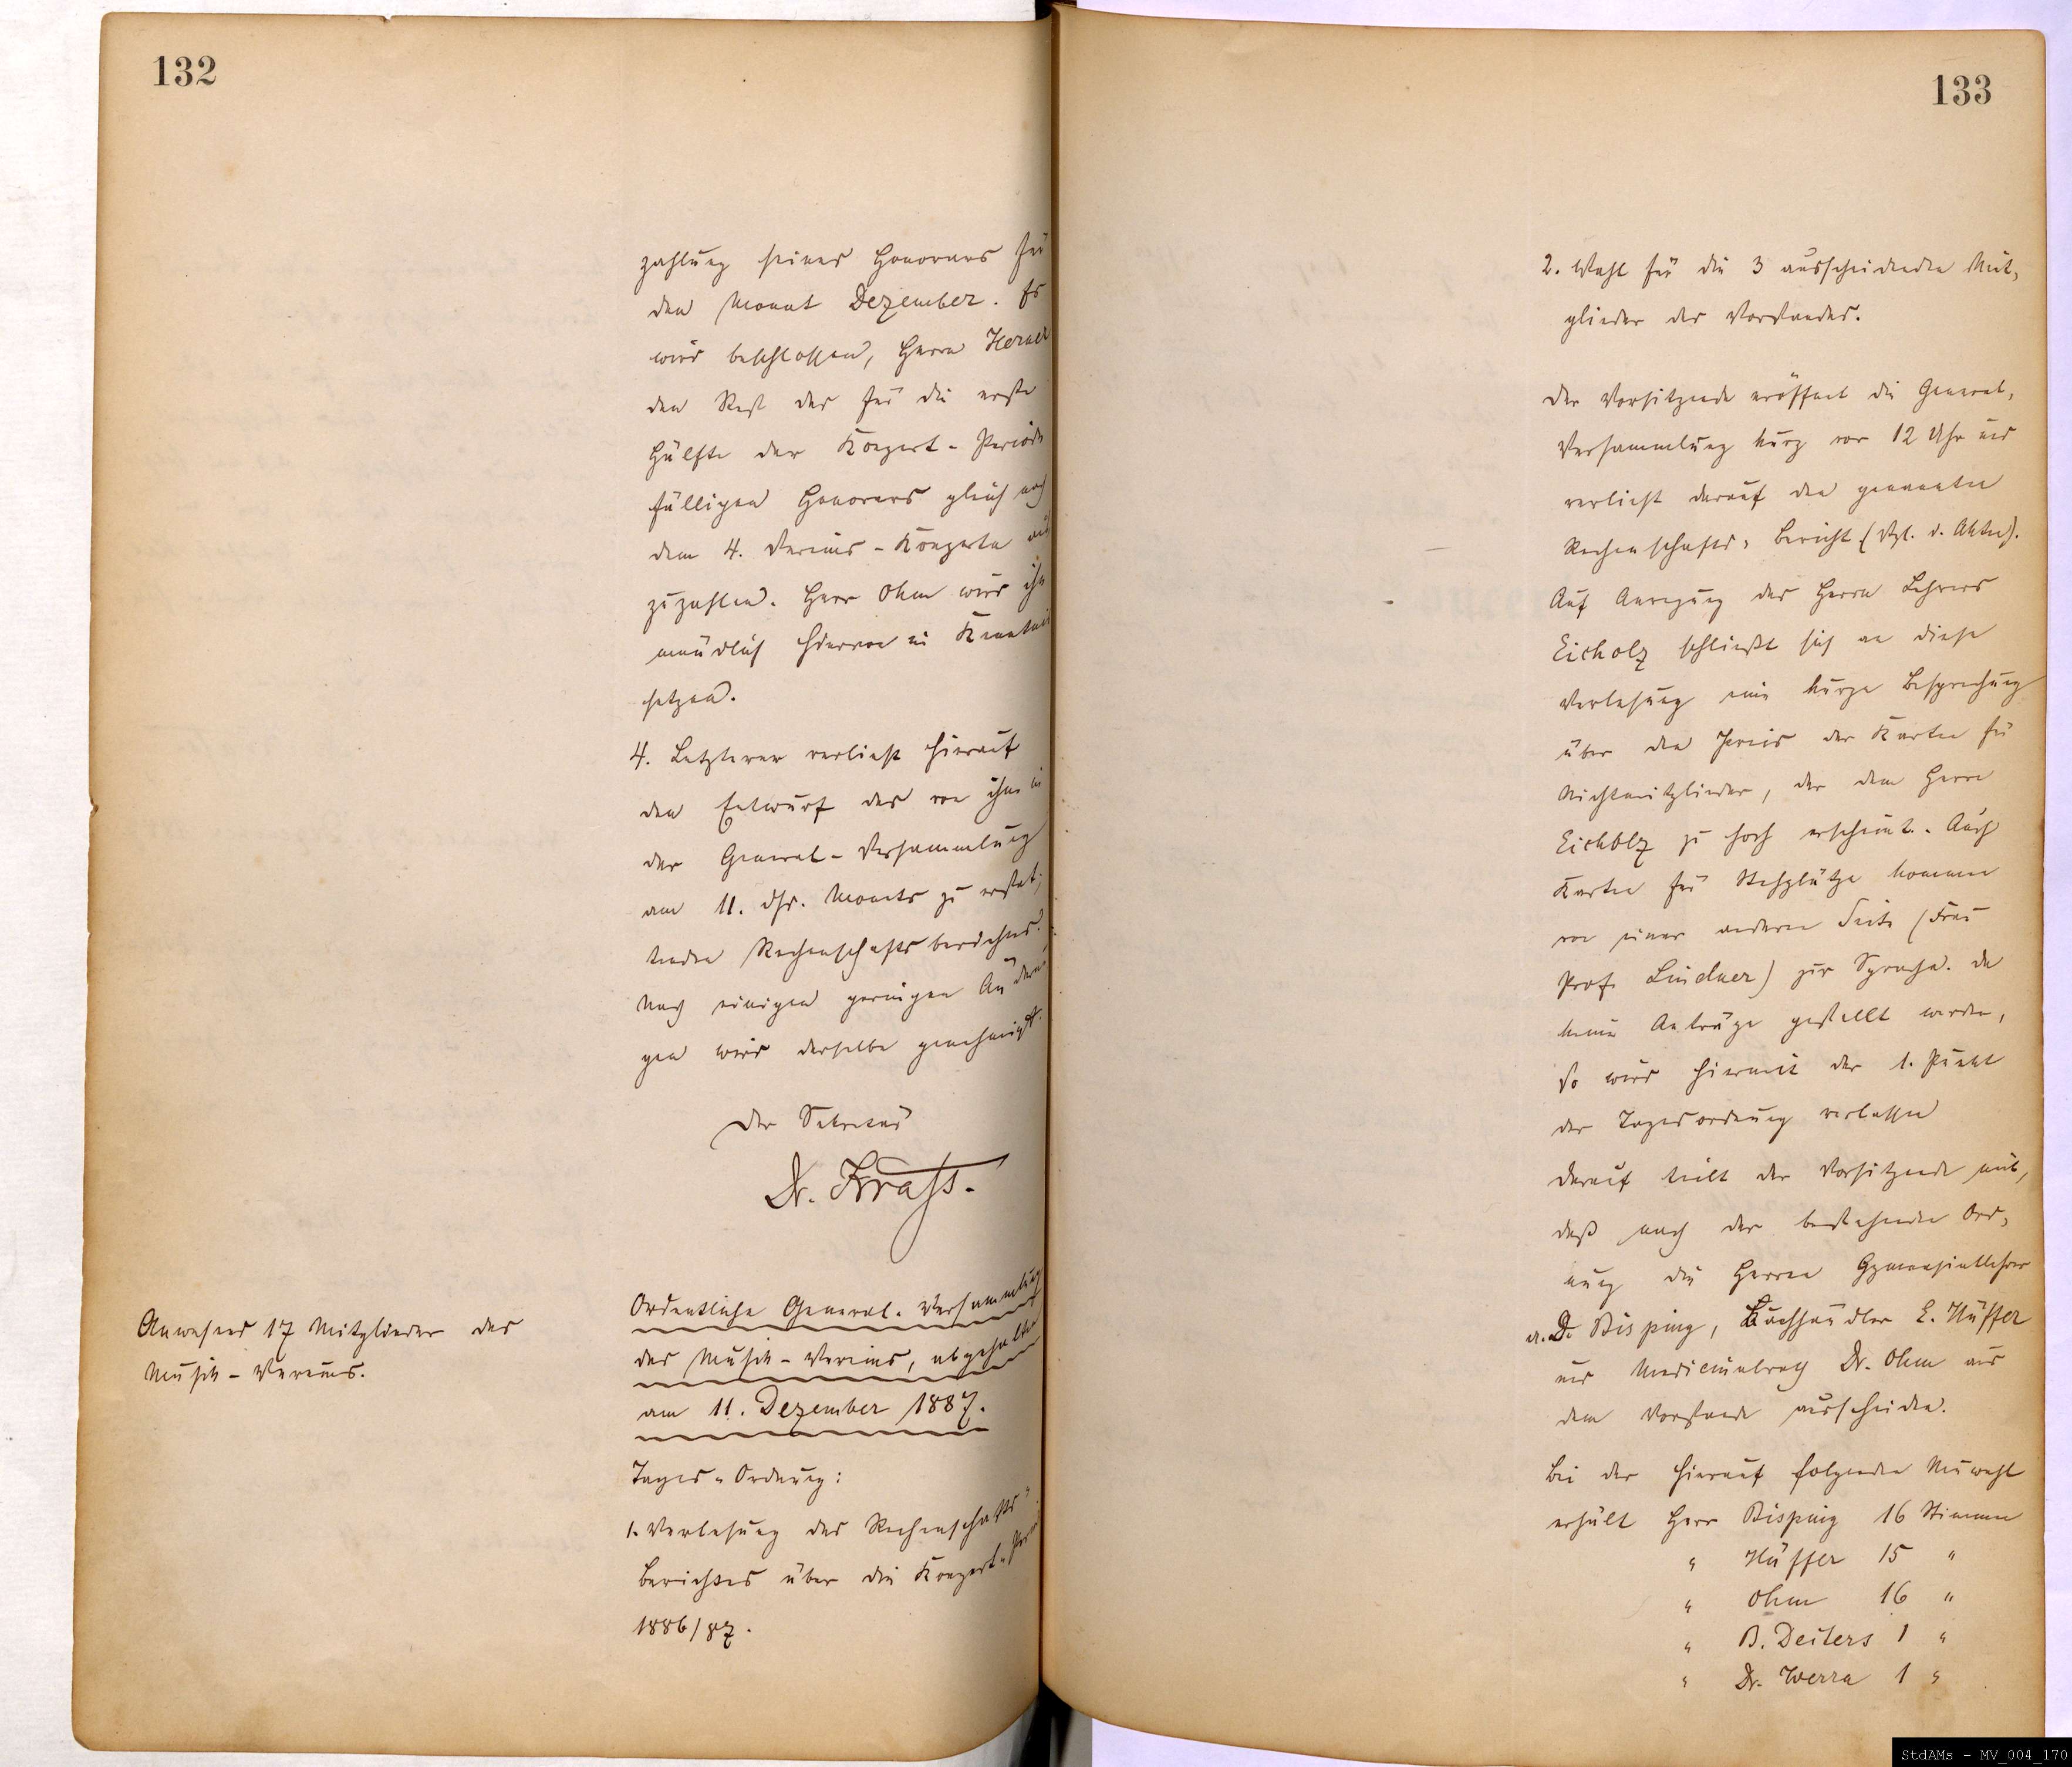 132
zahlung seines Honorars für
den Monat Dezember. Es
wird beschlossen, Herrn
den Rest des für die erste
Hälfte der Konzert-Periode
fälligen Honorars gleich nach
dem 4. Vereins-Konzerte aus
zuzahlen. Herr Ohm wird ihn
mündlich hiervon in Kenntnis
setzen.
4. Letzterer verliest hierauf
den Entwurf des von ihm in
der General-Versammlung
am 11. ds. Monats zu erstat,
tenden Rechenschaftsberichts.
Nach einigen geringen Änderun,
gen wird derselbe genehmigt.
Der Sekretär
Dr. Krass.
Anwesend 17 Mitglieder des
Musik-Vereins.
Ordentliche General-Versammlung
des Musik-Vereins, abgehalten
am 11. Dezember 1887.
Tages-Ordnung:
1. Verlesung des Rechenschafts-
Berichtes über die Konzert-Periode
1886/87.
133
2. Wahl für die 3 ausscheidenden Mit,
glieder des Vorstandes.
Der Vorsitzende eröffnet die General,
Versammlung kurz vor 12 Uhr und
verliest darauf den genannten
Rechenschafts-Bericht (Vgl. d. Akten).
Auf Anregung des Herrn Lehrers
Eicholz schließt sich an diese
Verlesung eine kurze Besprechung
über den Preis der Karten für
Nichtmitglieder, der dem Herrn
Eichholz zu hoch erscheint. Auch
Karten für Stehplätze kommen
von einer anderen Seite (Frau
Prof. Lindner) zur Sprache. Da
keine Anträge gestellt werden,
so wird hiermit der 1. Punkt
der Tagesordnung verlassen
Darauf teilt der Vorsitzende mit,
daß nach der bestehenden Ord,
nung die Herren Gymnasiallehrer
a. D. Bisping, Buchhändler E. Hüffer
und Medicinalrath Dr. Ohm aus
dem Vorstande ausscheiden.
Bei der hierauf folgenden Neuwahl
erhält Herr Bisping 16 Stimmen
" Hüffer 15 "
" Ohm 16 "
" B. Deiters 1 "
" Dr. Werra 1 "
StdAMs - MV_004_170